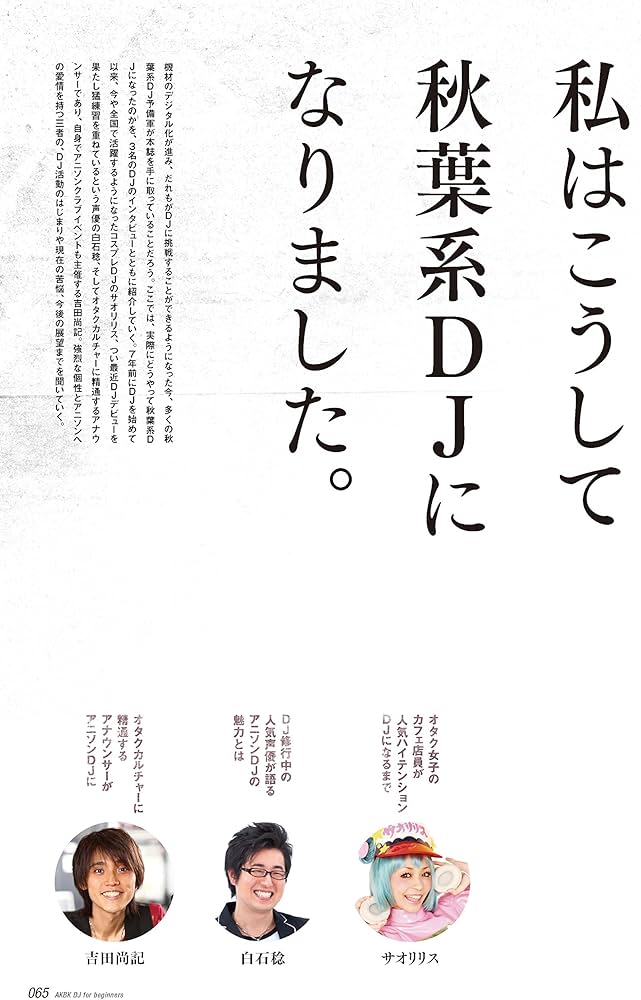 私はこうして
秋葉系DJに
なりました。
機材のデジタル化が進み、だれもがDJに挑戦することができるようになった今、多くの秋
葉系DJ予備軍が本誌を手に取っていることだろう。ここでは、実際にどうやって秋葉系D
Jになったのかを、3名のDJのインタビューとともに紹介していく。7年前にDJを始めて
以来、今や全国で活躍するようになったコスプレDJのサオリリス、つい最近DJデビューを
果たし猛練習を重ねているという声優の白石稔、そしてオタクカルチャーに精通するアナウ
ンサーであり、自身でアニソンクラブイベントも主催する吉田尚記。強烈な個性とアニソンへ
の愛情を持つ三者の、DJ活動のはじまりや現在の苦悩、今後の展望までを聞いていく。
オタク女子の
カフェ店員が
人気ハイテンション
DJになるまで
サオリリス
サオリリス
DJ修行中の
人気声優が語る
アニソンDJの
魅力とは
白石稔
オタクカルチャーに
精通する
アナウンサーが
アニソンDJに
吉田尚記
065 AKBK DJ for beginners